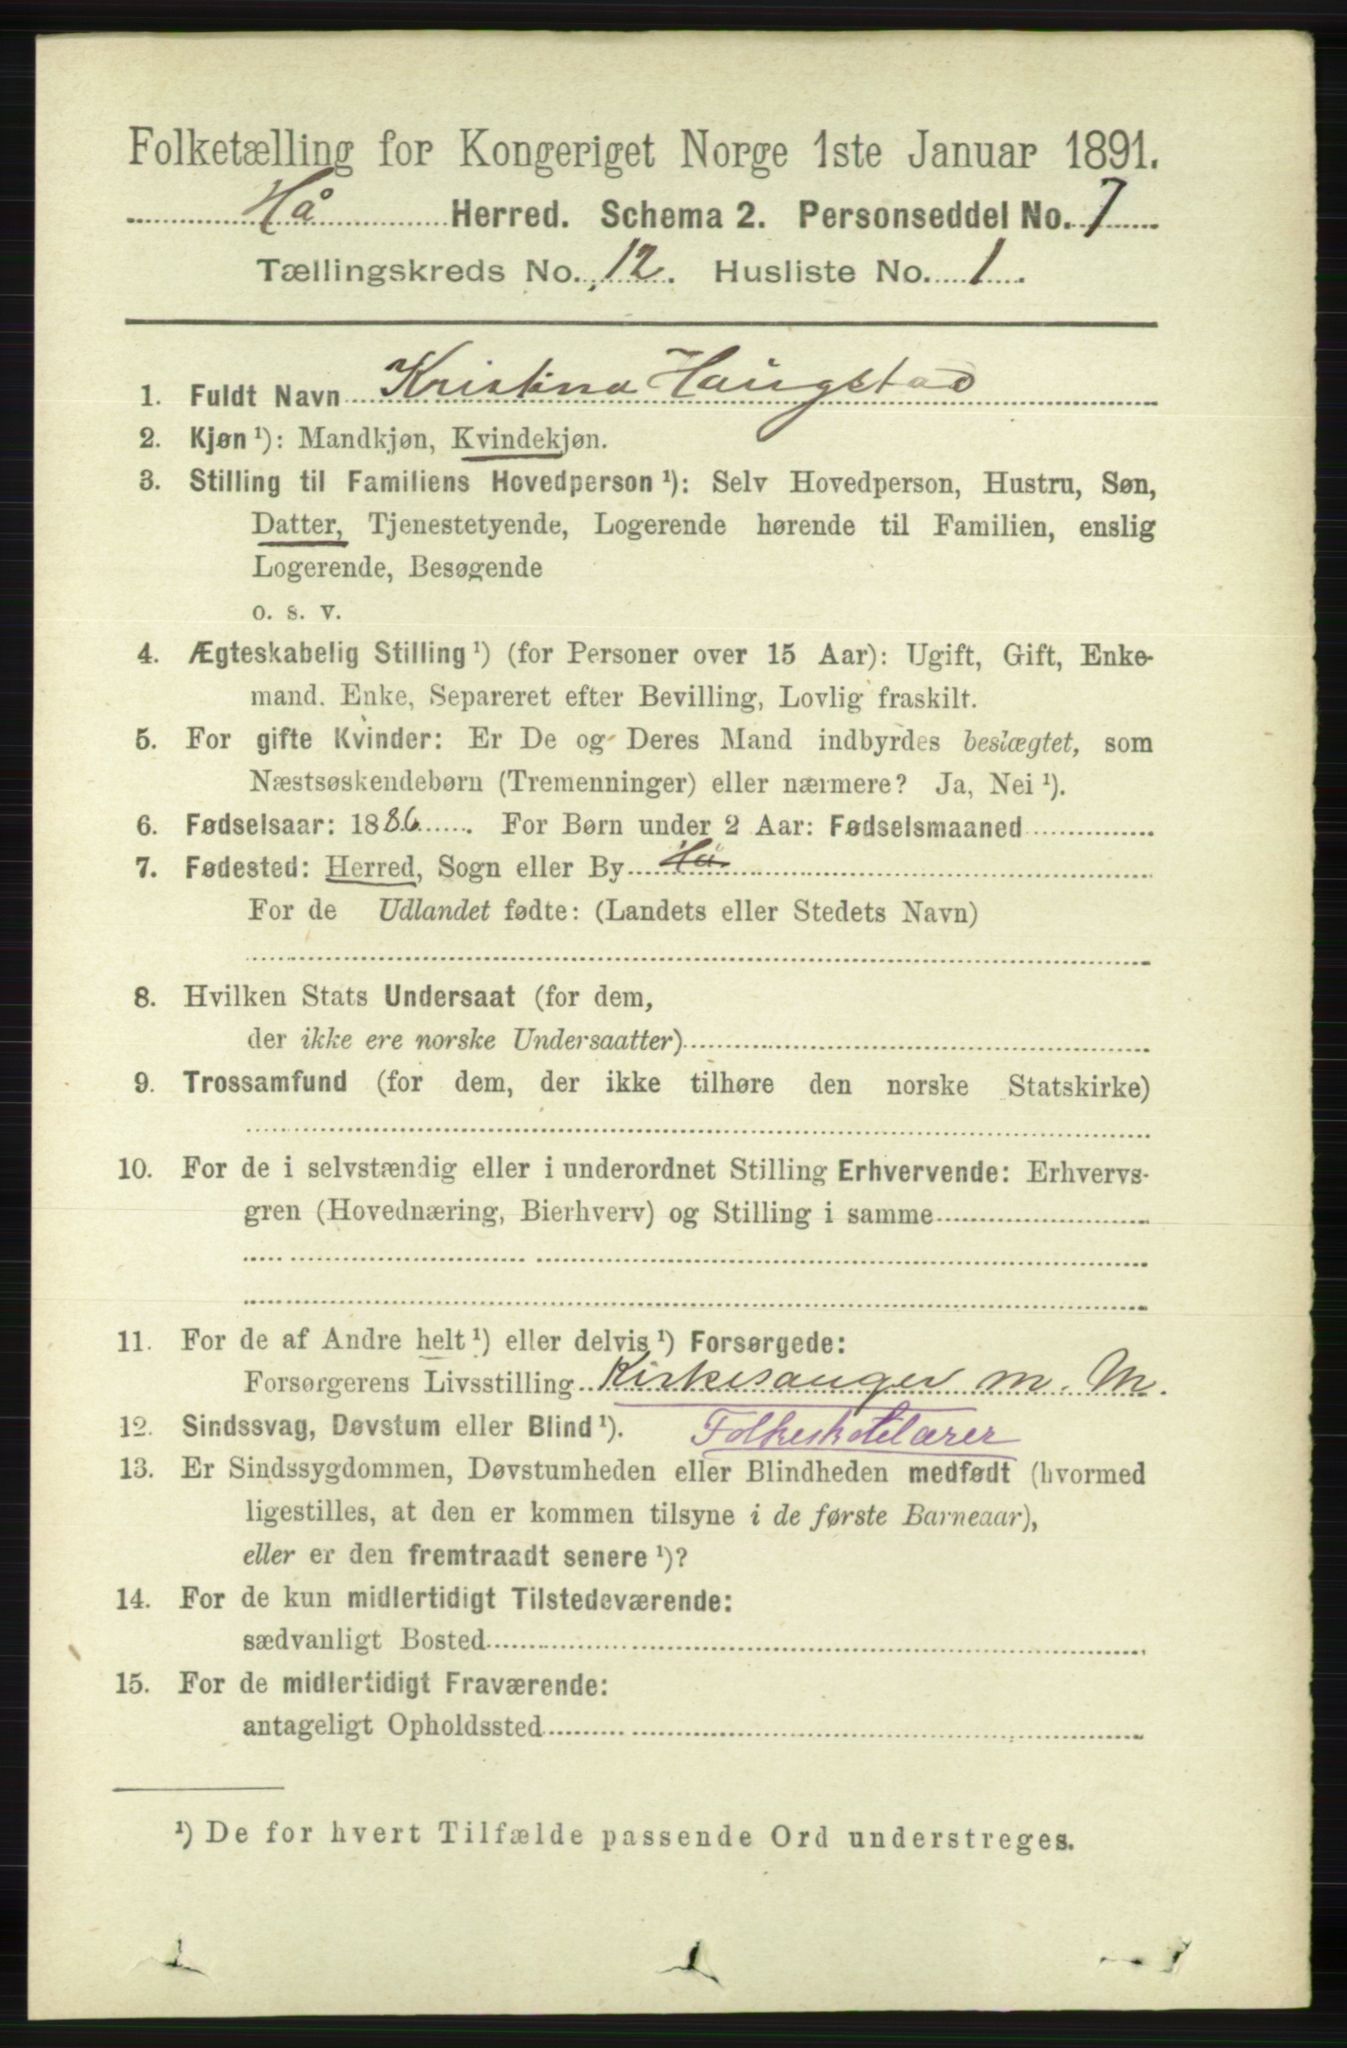 Folketælling for Kongeriget Norge 1ste Januar 1891.
Hå Herred. Schema 2. Personseddel No. 7
Tællingskreds No. 12. Husliste No. 1.
1. Fuldt Navn Kristina Haugstad
2. Kjøn ¹): Mandkjøn, Kvindekjøn.
3. Stilling til Familiens Hovedperson ¹): Selv Hovedperson, Hustru, Søn,
Datter, Tjenestetyende, Logerende hørende til Familien, enslig
Logerende, Besøgende
o. s. v.
4. Ægteskabelig Stilling ¹) (for Personer over 15 Aar): Ugift, Gift, Enke-
mand. Enke, Separeret efter Bevilling, Lovlig fraskilt.
5. For gifte Kvinder: Er De og Deres Mand indbyrdes beslægtet, som
Næstsøskendebørn (Tremenninger) eller nærmere? Ja, Nei ¹).
6. Fødselsaar: 1886. For Børn under 2 Aar: Fødselsmaaned
7. Fødested: Herred, Sogn eller By Hå
For de Udlandet fødte: (Landets eller Stedets Navn)
8. Hvilken Stats Undersaat (for dem,
der ikke ere norske Undersaatter)
9. Trossamfund (for dem, der ikke tilhøre den norske Statskirke)
10. For de i selvstændig eller i underordnet Stilling Erhvervende: Erhvervs-
gren (Hovednæring, Bierhverv) og Stilling i samme
11. For de af Andre helt ¹) eller delvis ¹) Forsørgede:
Forsørgerens Livsstilling Kirkesanger m. M.
12. Sindssvag, Døvstum eller Blind ¹). Folkeskolelærer
13. Er Sindssygdommen, Døvstumheden eller Blindheden medfødt (hvormed
ligestilles, at den er kommen tilsyne i de første Barneaar),
eller er den fremtraadt senere ¹)?
14. For de kun midlertidigt Tilstedeværende:
sædvanligt Bosted
15. For de midlertidigt Fraværende:
antageligt Opholdssted
¹) De for hvert Tilfælde passende Ord understreges.